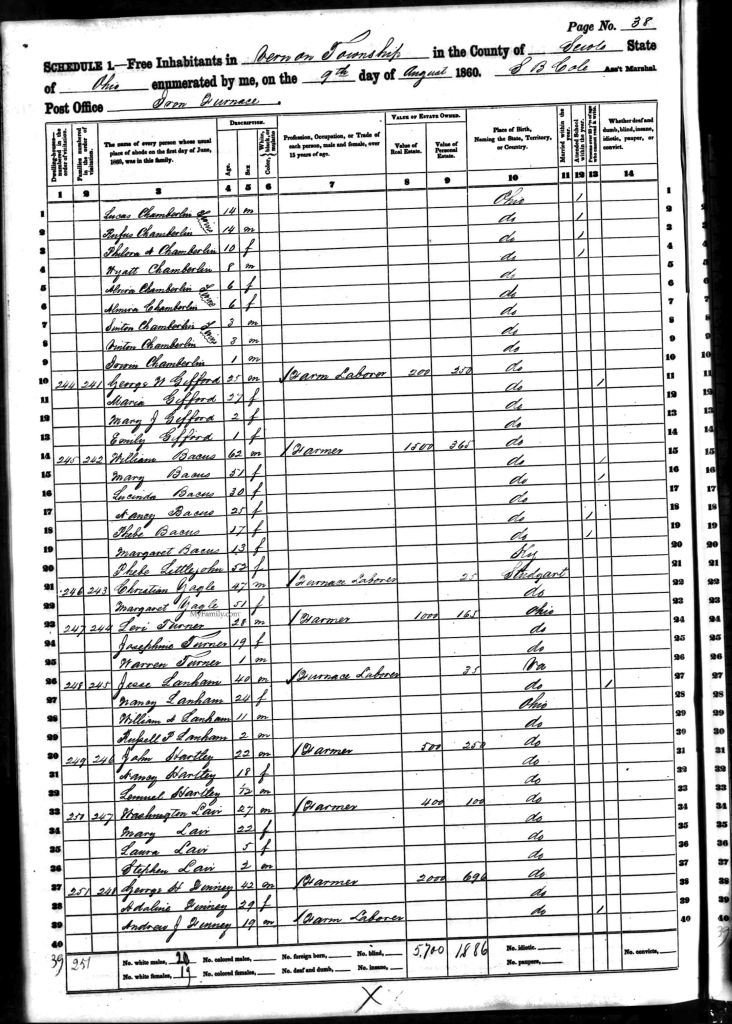 Page No. 38
SCHEDULE 1.—Free Inhabitants in Vernon Township in the County of Scioto State
of Ohio enumerated by me, on the 9th day of August 1860. S B Cole Ass't Marshal.
Post Office Iron Furnace.
Dwelling-houses—numbered in the order of visitation. Families numbered in the order of visitation. The name of every person whose usual place of abode on the first day of June, 1860, was in this family. DESCRIPTION. Age. Sex. Color, White, black, or mulatto. Profession, Occupation, or Trade of each person, male and female, over 15 years of age. VALUE OF ESTATE OWNED. Value of Real Estate. Value of Personal Estate. Place of Birth, Naming the State, Territory, or Country. Married within the year. Attended School within the year. Persons over 20 y'rs of age who cannot read & write. Whether deaf and dumb, blind, insane, idiotic, pauper, or convict.
1 2 3 4 5 6 7 8 9 10 11 12 13 14
1 Lucas Chamberlin Twins 14 m Ohio / 1
2 Rufus Chamberlin 14 m do / 2
3 Philora A Chamberlin 10 f do / 3
4 Wyatt Chamberlin 8 m do / 4
5 Alvira Chamberlin Twins 6 f do 5
6 Almira Chamberlin 6 f do 6
7 Sinton Chamberlin Twins 3 m do 7
8 Vinton Chamberlin 3 m do 8
9 Chamberlin 1 m do 9
10 244 241 George W Gifford 25 m / Farm Laborer 200 250 do 10
11 Maria Gifford 27 f do / 11
12 Mary J Gifford 2 f do 12
13 Emily Gifford 1 f do 13
14 245 242 William Bacus 62 m / Farmer 1500 365 do 14
15 Mary Bacus 51 f do / 15
16 Lucinda Bacus 30 f do / 16
17 Nancy Bacus 25 f do 17
18 Phebe Bacus 17 f do / 18
19 Margaret Bacus 13 f do / 19
20 Phebe Littlejohn 52 f Ky 20
21 246 243 Christian Yagle 47 m / Furnace Laborer 25 Studgart 21
22 Margaret Yagle 51 f do 22
23 247 244 Levi Turner 28 m / Farmer 1000 165 Ohio 23
24 Josephine Turner 19 f do 24
25 Warren Turner 1 m do 25
26 248 245 Jesse Lanham 40 m / Furnace Laborer 35 Va 26
27 Nancy Lanham 24 f do / 27
28 William A Lanham 11 m Ohio 28
29 Russell P Lanham 2 m do 29
30 249 246 John Hartley 22 m / Farmer 500 250 do 30
31 Nancy Hartley 18 f do 31
32 Lemuel Hartley /12 m do 32
33 250 247 Washington Lair 27 m / Farmer 400 100 do 33
34 Mary Lair 22 f do 34
35 Laura Lair 5 f do 35
36 Stephen Lair 2 m do 36
37 251 248 George H Finney 42 m / Farmer 2000 696 do 37
38 Adaline Finney 29 f do 38
39 Andrew J Finney 19 m / Farm Laborer do / 39
40 40
39 251 No. white males, 20 No. colored males, No. foreign born, No. blind, 5,700 1886 No. idiotic, No. convicts,
No. white females, 19 No. colored females, No. deaf and dumb, No. insane, No. paupers,
X
MyFamily.com